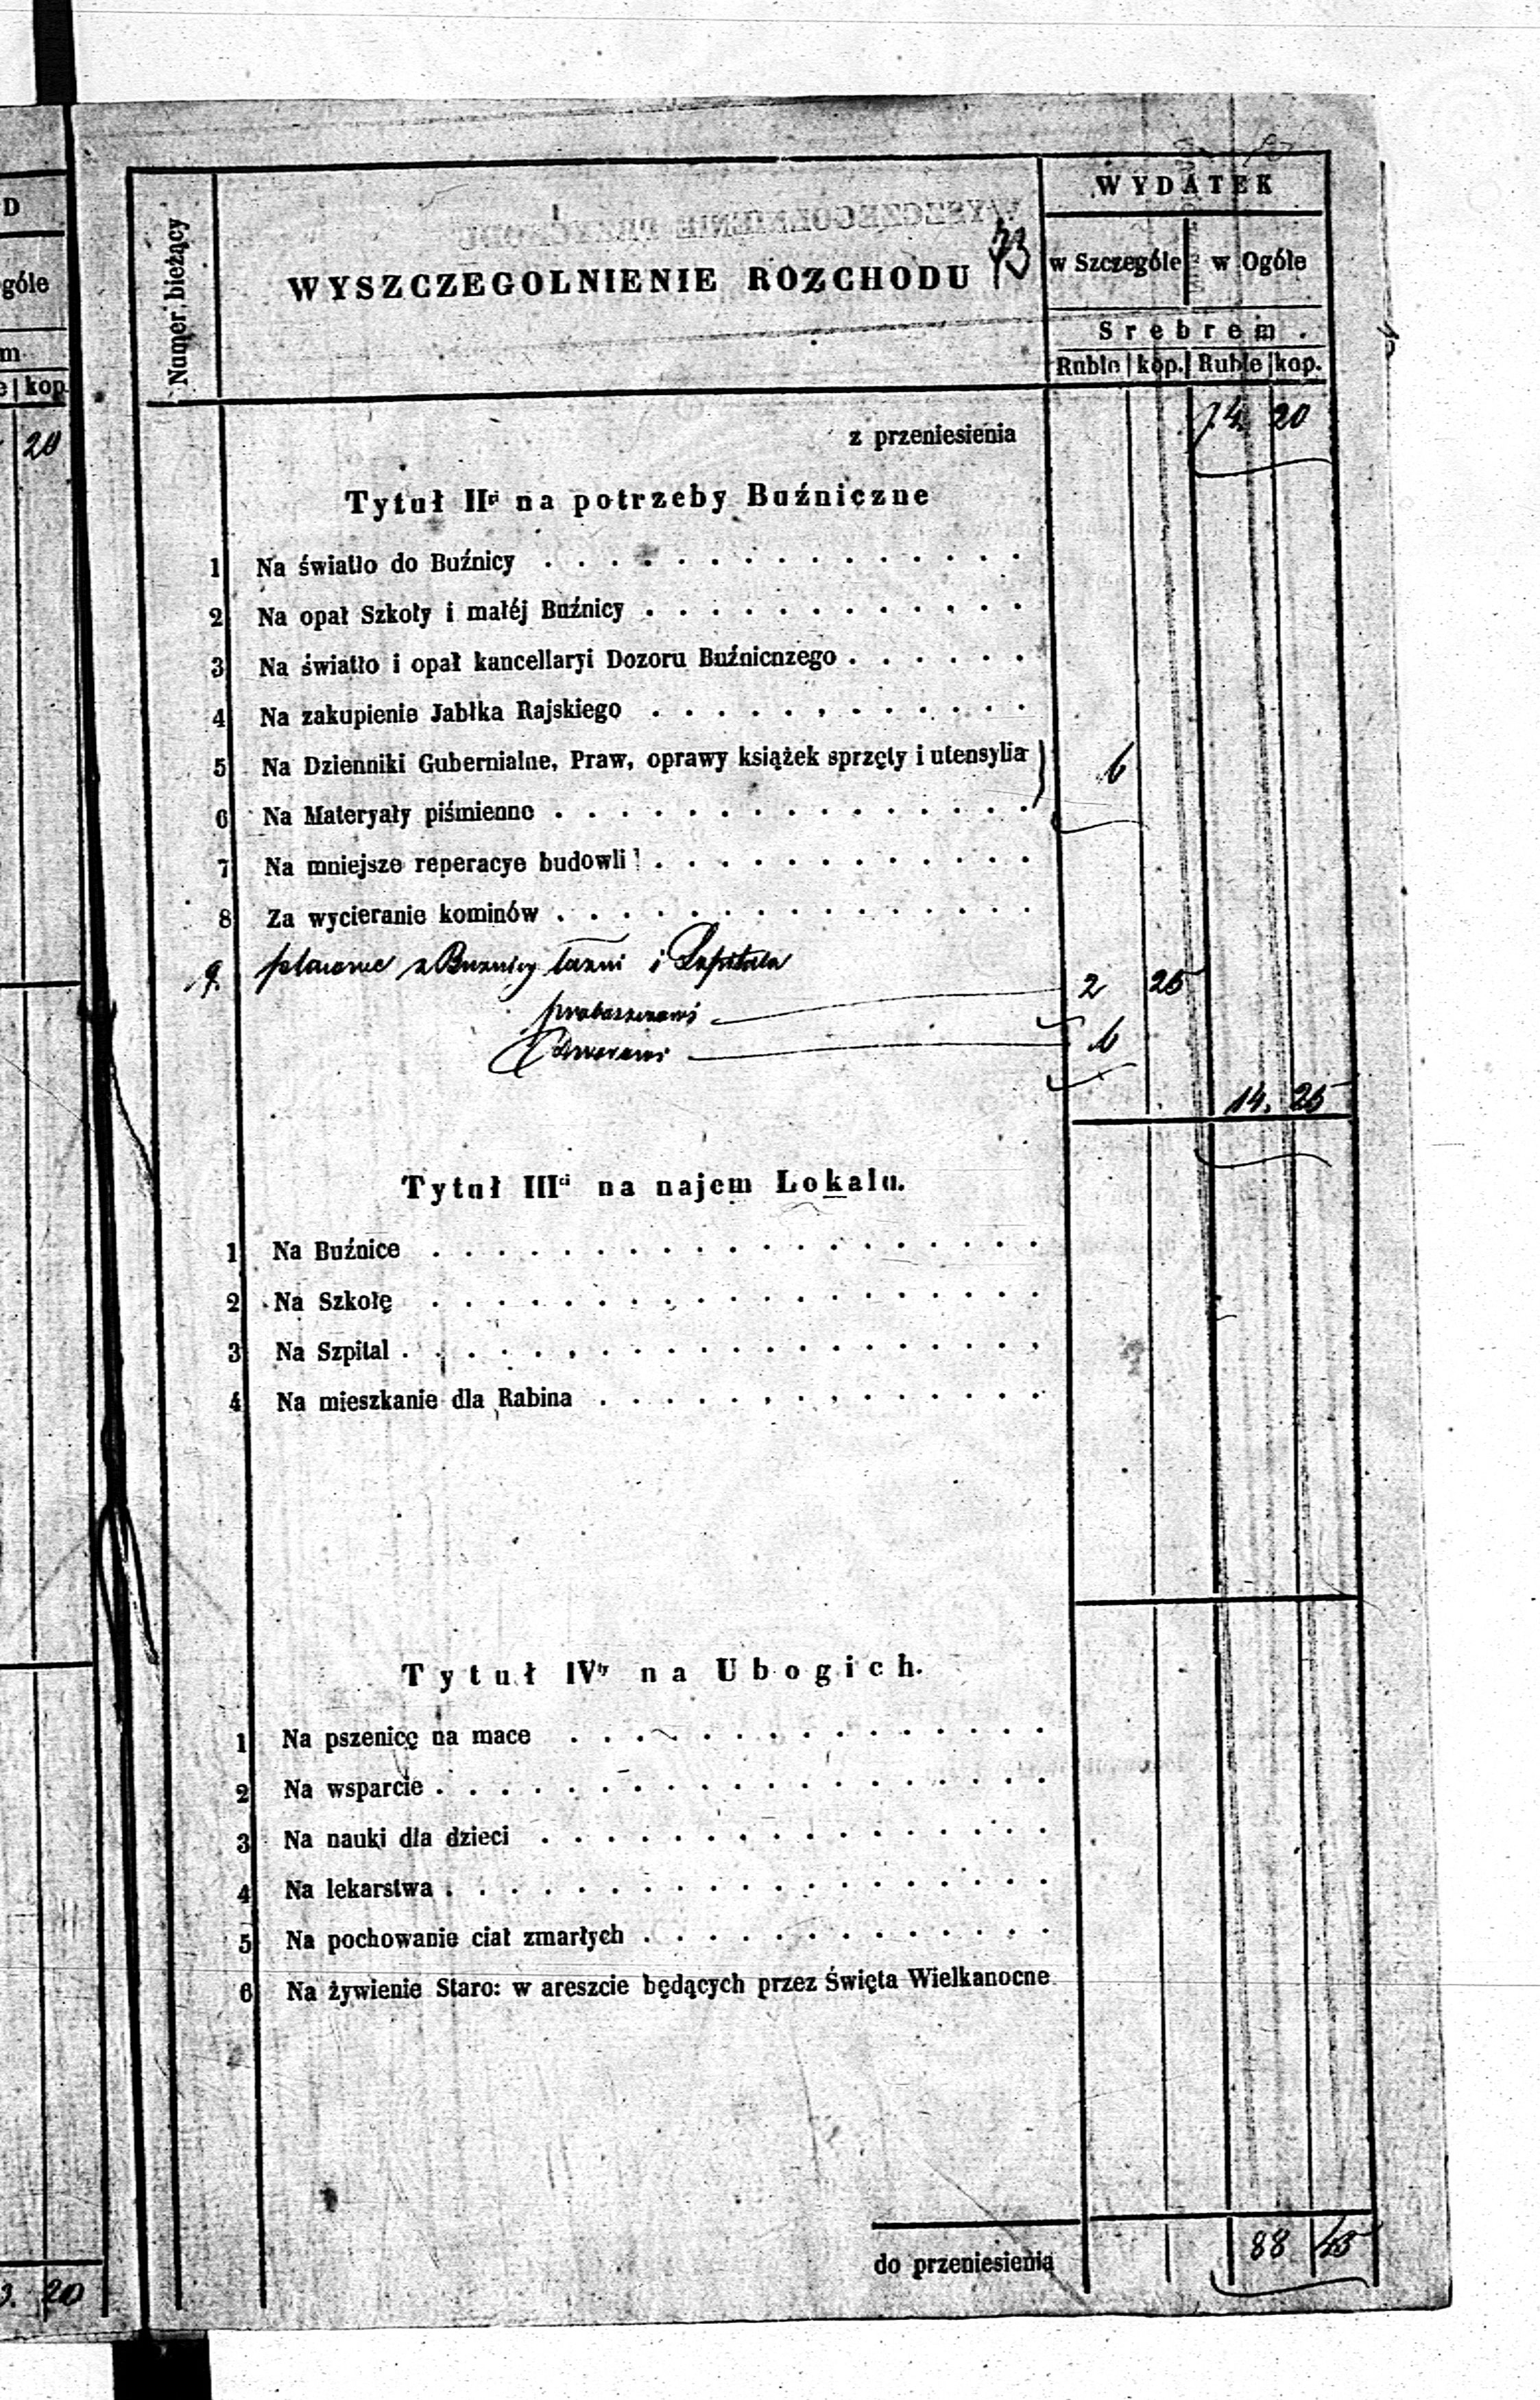 D
góle
m
kop
20
Numer bieżący
WYSZCZEGOLNIENIE ROZCHODU
73
WYDATEK
w Szczególe w Ogóle
Srebrem.
Ruble kop. Ruble kop.
z przeniesienia 74. 20
Tytuł IIgi na potrzeby Buźniczne
1 Na światło do Buźnicy
2 Na opał Szkoły i małéj Buźnicy
3 Na światło i opał kancellaryi Dozoru Buźnicnzego
4 Na zakupienie Jabłka Rajskiego
5 Na Dzienniki Gubernialne, Praw, oprawy książek sprzęty i utensylia 6
6 Na Materyały piśmienne
7 Na mniejsze reperacye budowli
8 Za wycieranie kominów
9. z Buznicy łazni i Szpitala
2 25
Dworowi 6
14. 25
Tytuł IIIci na najem Lokalu.
1 Na Buźnice
2 Na Szkołę
3 Na Szpital
4 Na mieszkanie dla Rabina
Tytuł IVty na Ubogich.
1 Na pszenicę na mace
2 Na wsparcie
3 Na nauki dla dzieci
4 Na lekarstwa
5 Na pochowanie ciał zmarłych
6 Na żywienie Staro: w areszcie będących przez Święta Wielkanocne
do przeniesienia 88 45
20